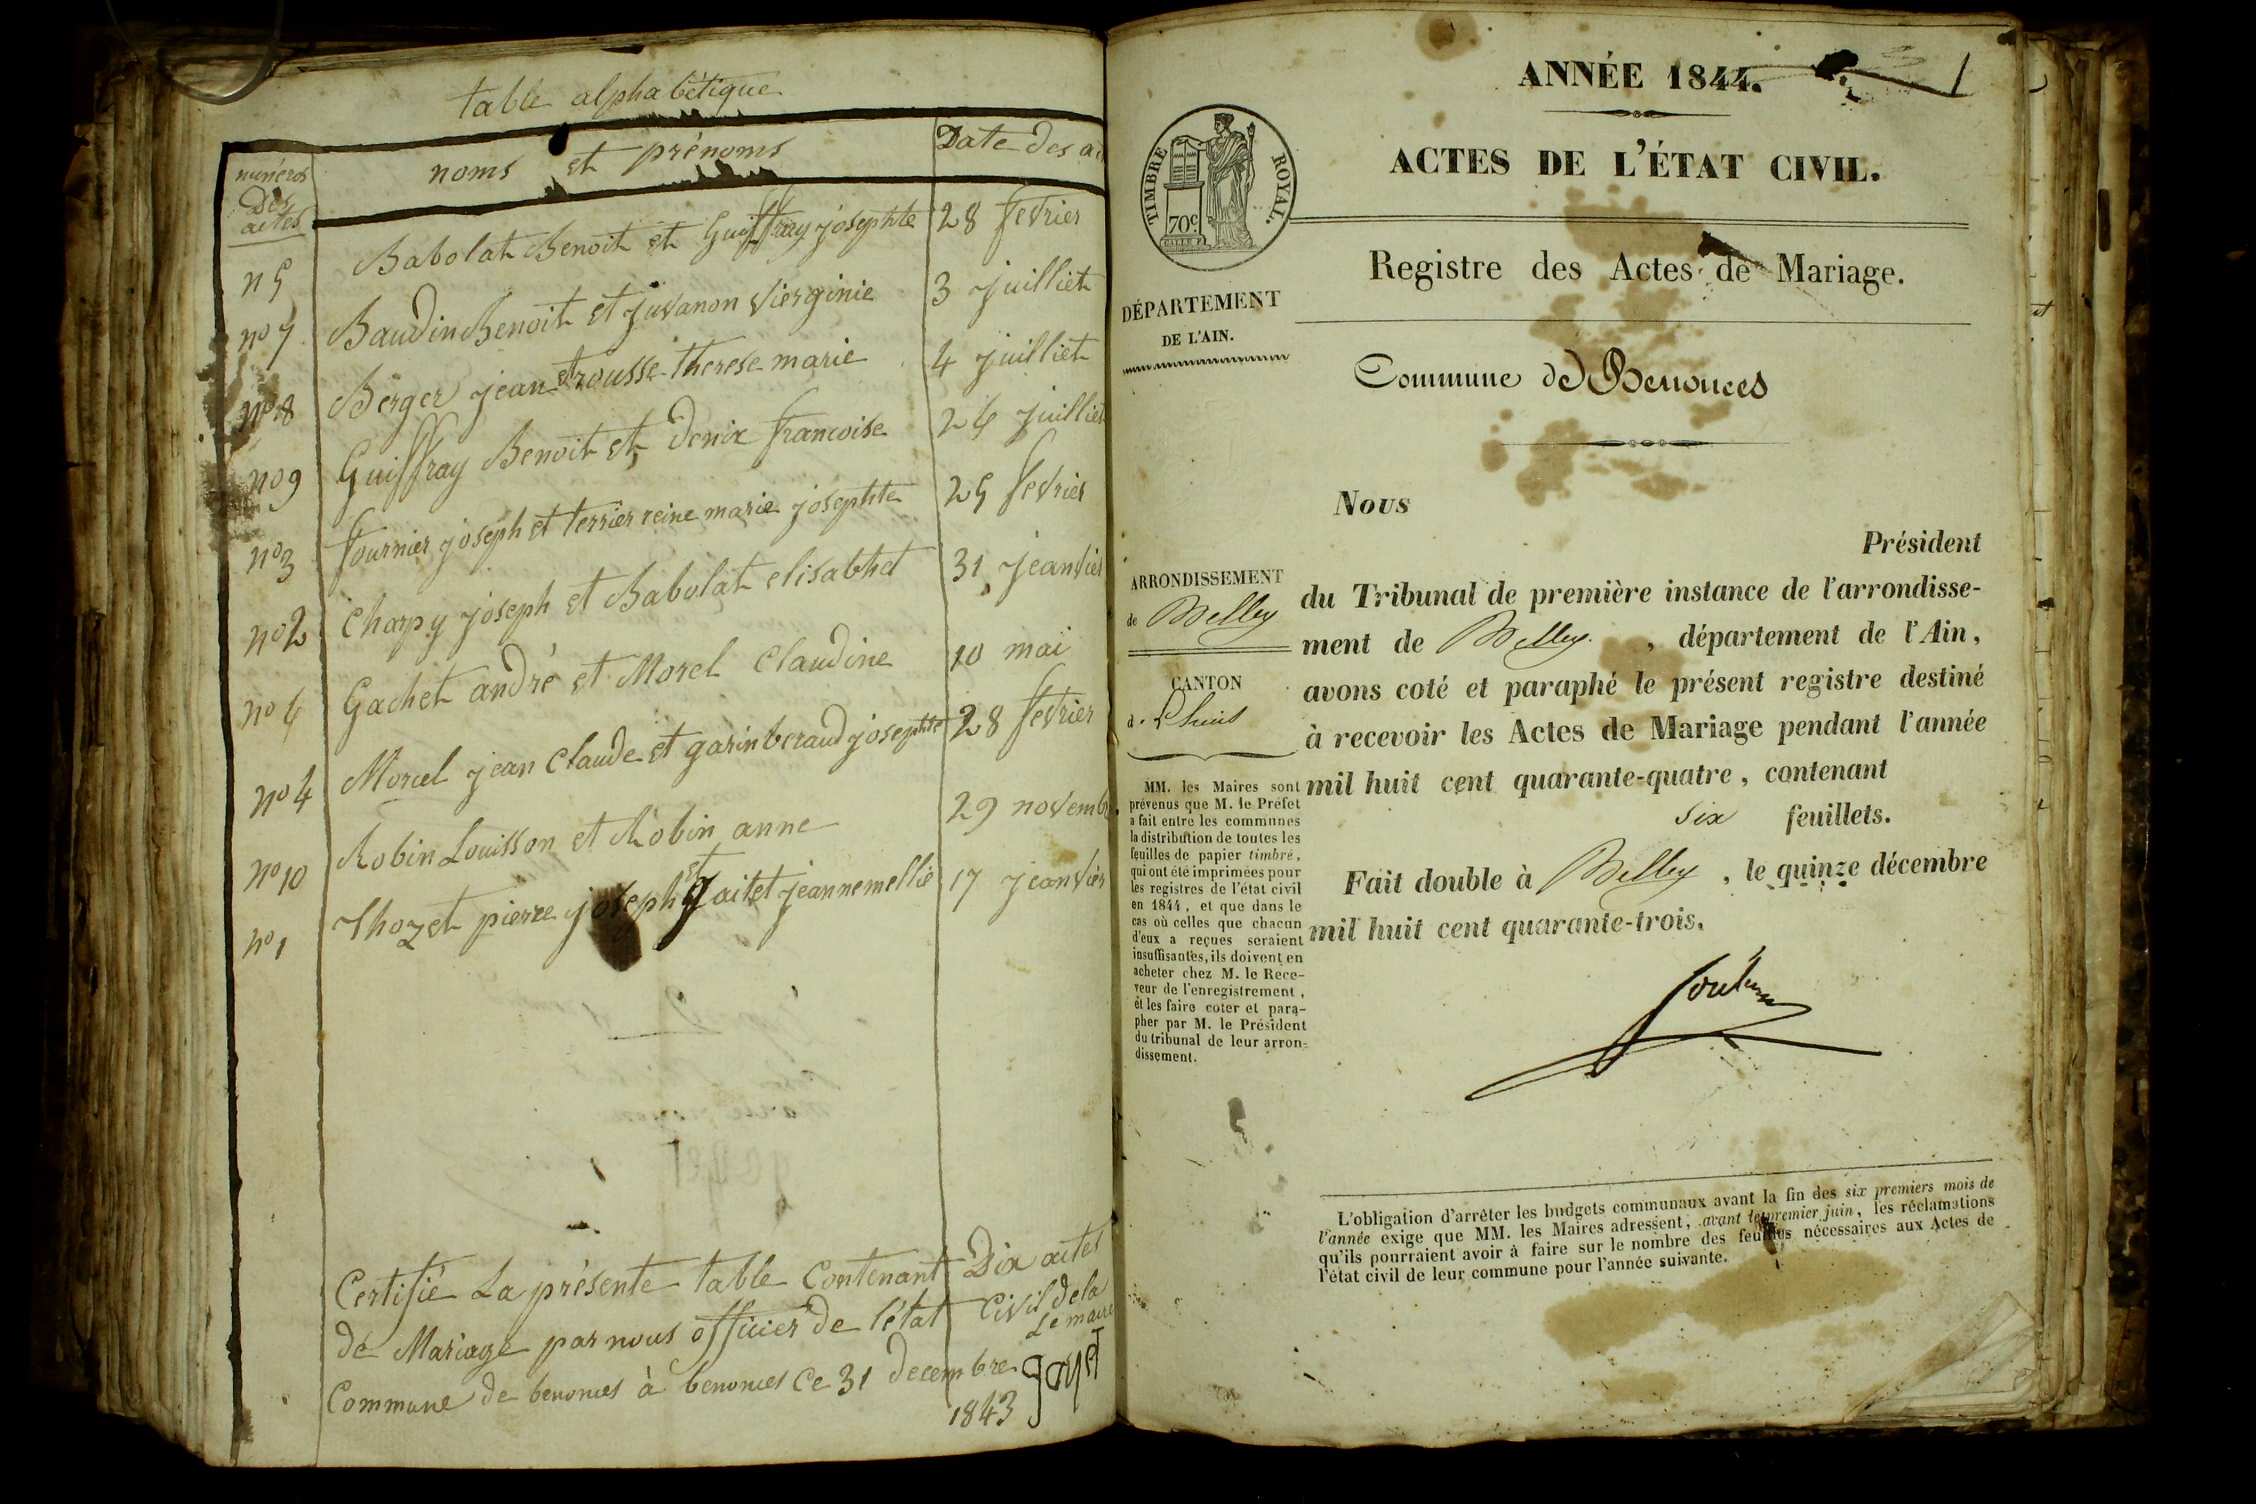 table alphabétique
numéros des actes
noms et prénoms
Date des a
n 5 Babolat Benoit et Guiffray josephte 28 fevrier
no 7 Baudin Benoit et juvanon vierginie 3 juilliet
no 8 Berger jean et rousse therese marie 4 juilliet
no 9 Guiffray Benoit et denix francoise 26 juilliet
no 3 fournier joseph et terrier reine marie josephte 25 fevrier
no 2 Charpy joseph et Babolat elisabhet 31 jeanvier
no 6 Gachet andré et Morel Claudine 10 mai
no 4 Morael jean Claude et garinberaud josephte 28 fevrier
no 10 Robin Louisson et Robin anne 29 novemb
no 1 Thozet pierre joseph et jaitet jeannemellie 17 jeanvier
Certifié La présente table Contenant Dix actes
de Mariage par nous officier de l'état Civil de la
Commune de benonces à benonces Ce 31 decembre
1843
Le maire
gayet
ANNÉE 1844.
1
ACTES DE L'ÉTAT CIVIL.
TIMBRE ROYAL.
70c
Registre des Actes de Mariage.
DÉPARTEMENT
DE L'AIN.
Commune de Benonces
Nous
Président
ARRONDISSEMENT
de Belley
CANTON
d. Lhuis
du Tribunal de première instance de l'arrondisse-
ment de Belley , département de l'Ain,
avons coté et paraphé le présent registre destiné
à recevoir les Actes de Mariage pendant l'année
mil huit cent quarante-quatre, contenant
six feuillets.
Fait double à Belley , le quinze décembre
mil huit cent quarante-trois.
MM. les Maires sont
prévenus que M. le Préfet
a fait entre les communes
la distribution de toutes les
feuilles de papier timbré,
qui ont été imprimées pour
les registres de l'état civil
en 1844, et que dans le
cas où celles que chacun
d'eux a reçues seraient
insuffisantes, ils doivent en
acheter chez M. le Rece-
veur de l'enregistrement,
et les faire coter et para-
pher par M. le Président
du tribunal de leur arron-
dissement.
L'obligation d'arrêter les budgets communaux avant la fin des six premiers mois de
l'année exige que MM. les Maires adressent, avant le premier juin, les réclamations
qu'ils pourraient avoir à faire sur le nombre des feuilles nécessaires aux Actes de
l'état civil de leur commune pour l'année suivante.